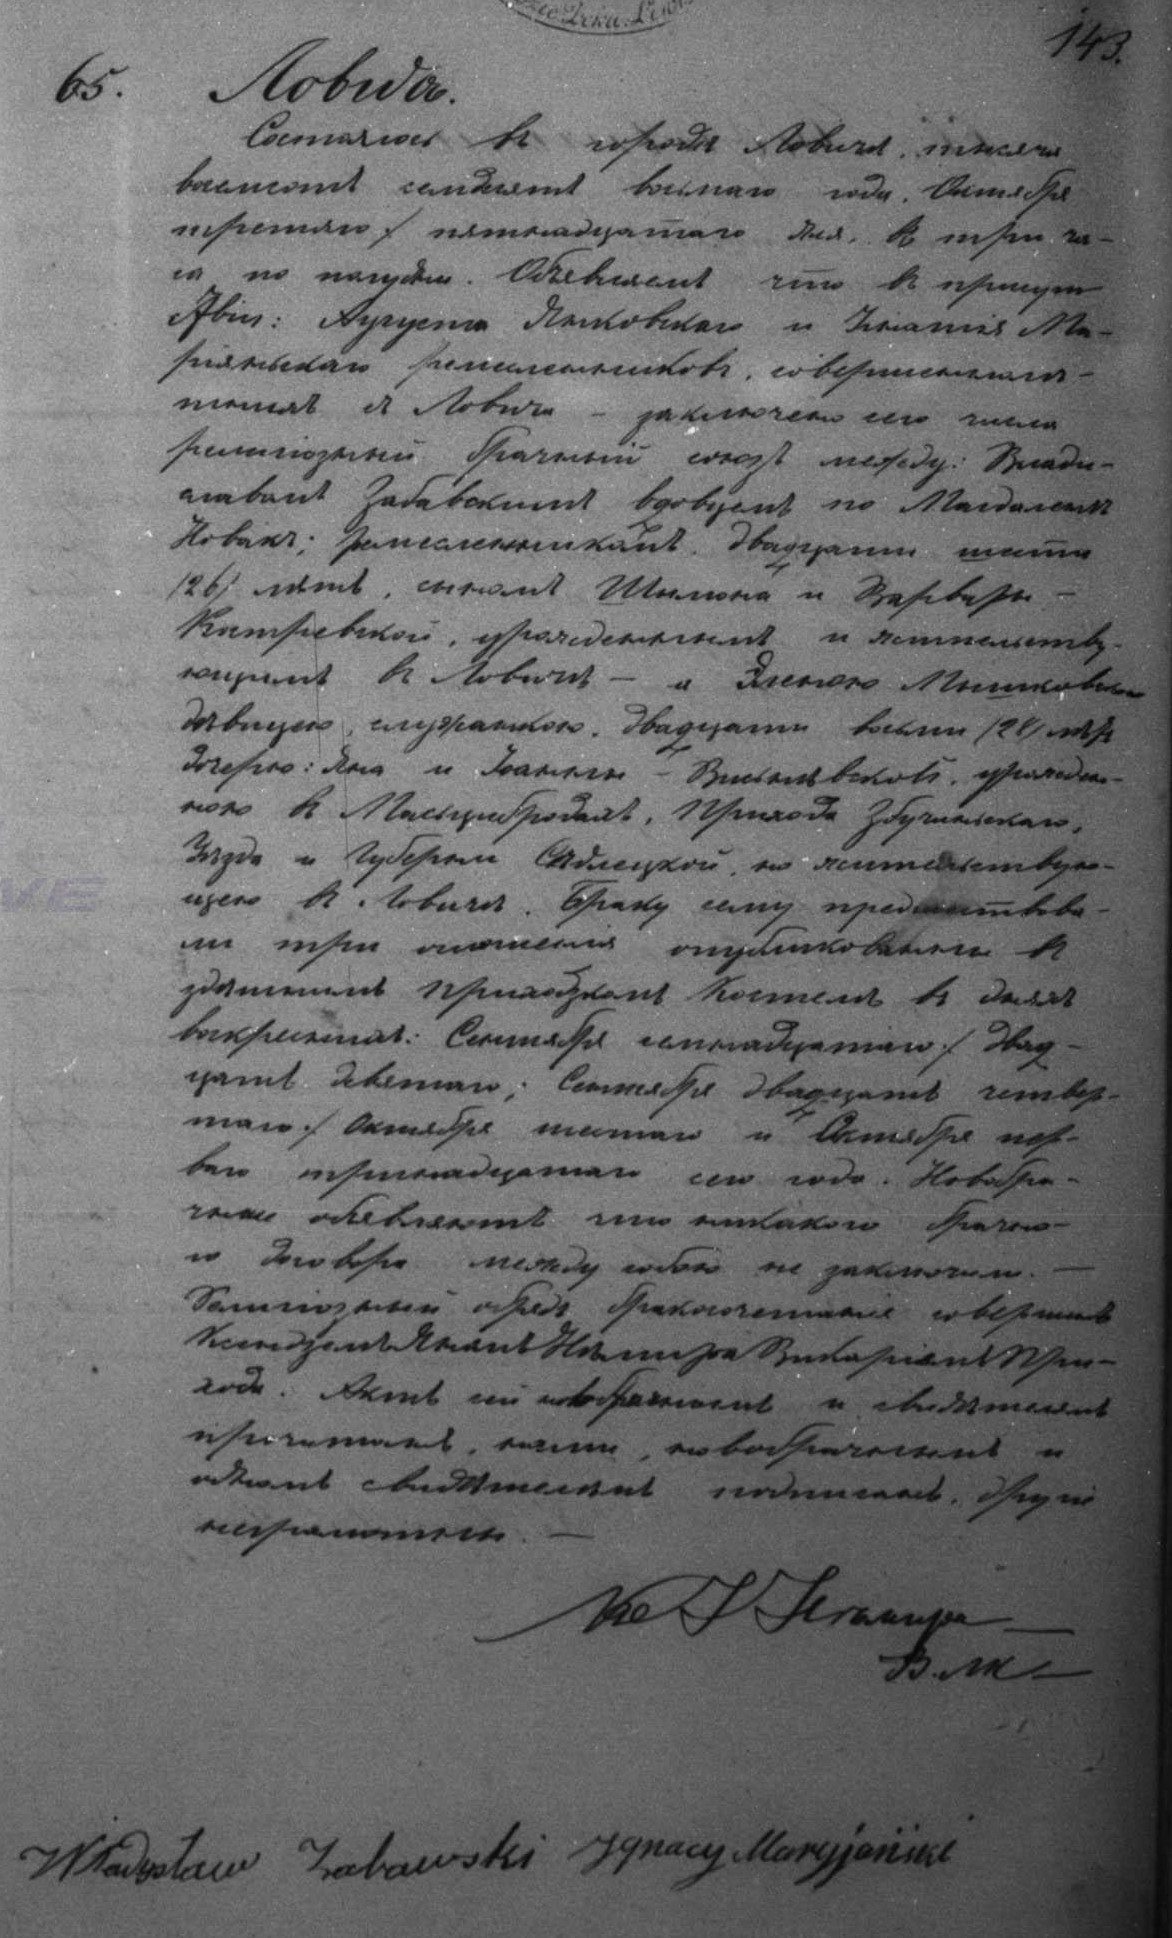 143.
65. Ловичъ.
Состоялось въ городѣ Ловичѣ, тысяча
восемьсотъ семдесятъ восьмаго года, Октября
третяго / пятнадцатаго дня, въ три ча-
са по полудни. Объевляемъ что въ присут
ствіи: Августа Янковскаго и Игнатія Ма-
ріянскаго ремесленниковъ, совершеннолѣ-
тныхъ въ Ловичѣ – заключено сего числа
религіозный брачный союзъ между: Влади-
славомъ Забавскимъ вдовцемъ по Магдаленѣ
Новакъ; ремесленникомъ, двадцати шести
/26/ лѣтъ, сыномъ Шимона и Варвары –
урожденнымъ и жительству-
ющимъ въ Ловичѣ – и Еленою
дѣвицею, служанкою, двадцати восьми /28/ лѣтъ
дочерью: Яна и Іоанны – урожден-
ною въ прихода Збучинскаго,
Уѣзда и Губерніи Сѣдлецкой, но жительствую-
щею въ Ловичѣ. Браку сему предшествова-
ли три оглашенія опубликованныя въ
здѣшнемъ приходскомъ Костелѣ въ дняхъ
воскресныхъ: Сентября семнадцатаго / двад-
цать девятаго; Сентября двадцать четвер-
таго / Октября шестаго и Октября пер-
ваго тринадцатаго сего года. Новобра-
чные объевляютъ что никакого брачно-
го договора между собою не заключили. –
Религіозный обрядъ бракосочетанія совершенъ
Ксендземъ Яномъ Викаріемъ При-
хода. Актъ сей новобрачнымъ и свидѣтелямъ
прочитанъ, нами, новобрачнымъ и
однимъ свидѣтелемъ подписанъ, другіе
неграмотны. –
В. М.
Władysław Zabawski Ignacy Maryjański